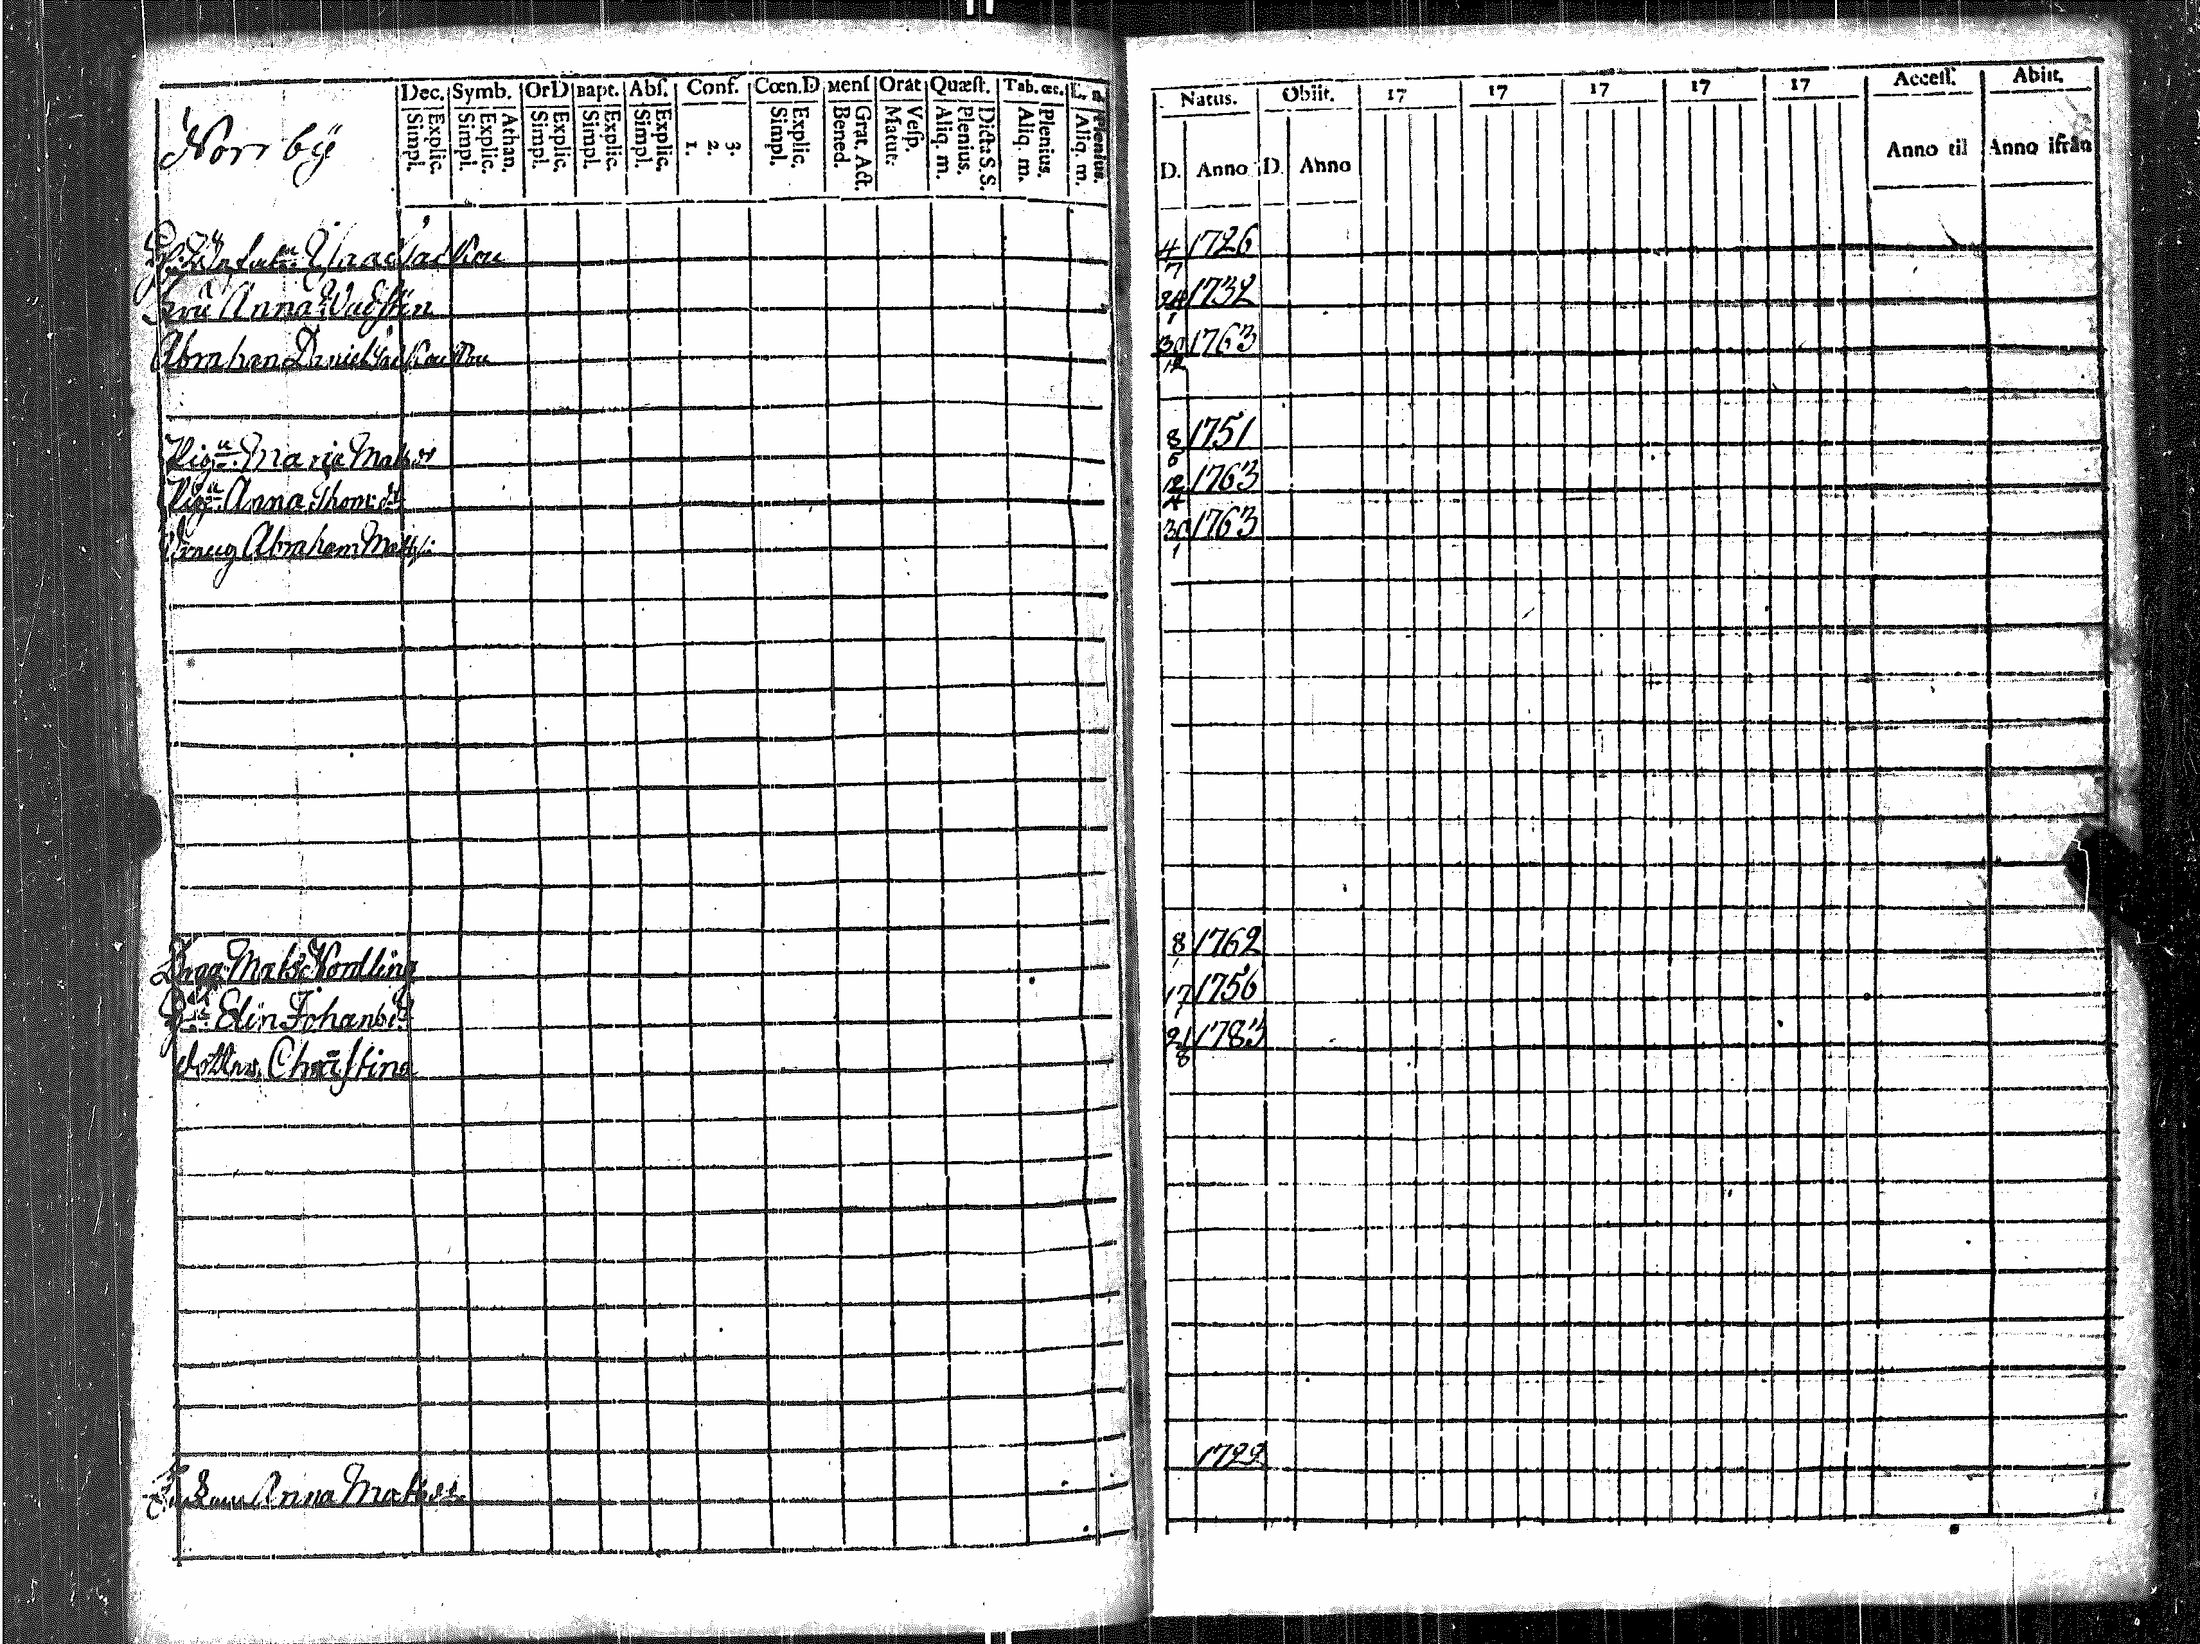 Norrbÿ
Dec. Symb. OrD Bapt. Abſ. Conf. Cœn.D Menſ Orat Quæſt. Tab. œc.
Explic. Simpl. Athan. Explic. Simpl. Explic. Simpl. Explic. Simpl. Explic. Simpl. 3. 2. 1. Explic. Simpl. Grat. Act. Bened. Veſp. Matut. Dicta S.S. Plenius. Aliq. m. Plenius. Aliq. m. Plenius. Aliq. m.
Natus. Obiit. 17 17 17 17 17 Acceſſ. Abiit.
D. Anno D. Anno Anno til Anno ifrån
4/7 1726
Fru Anna Wadſtén 24/1 1732
Abraham Daniel 30/12 1763
Pig. Maria Mats 8/6 1751
Pig. Anna Thom 12/4 1763
Abraham Matts 30/1 1763
Mats 8 1762
Elin Johans 17 1756
Dotter Christina 21/8 1783
Anna Mats 1722